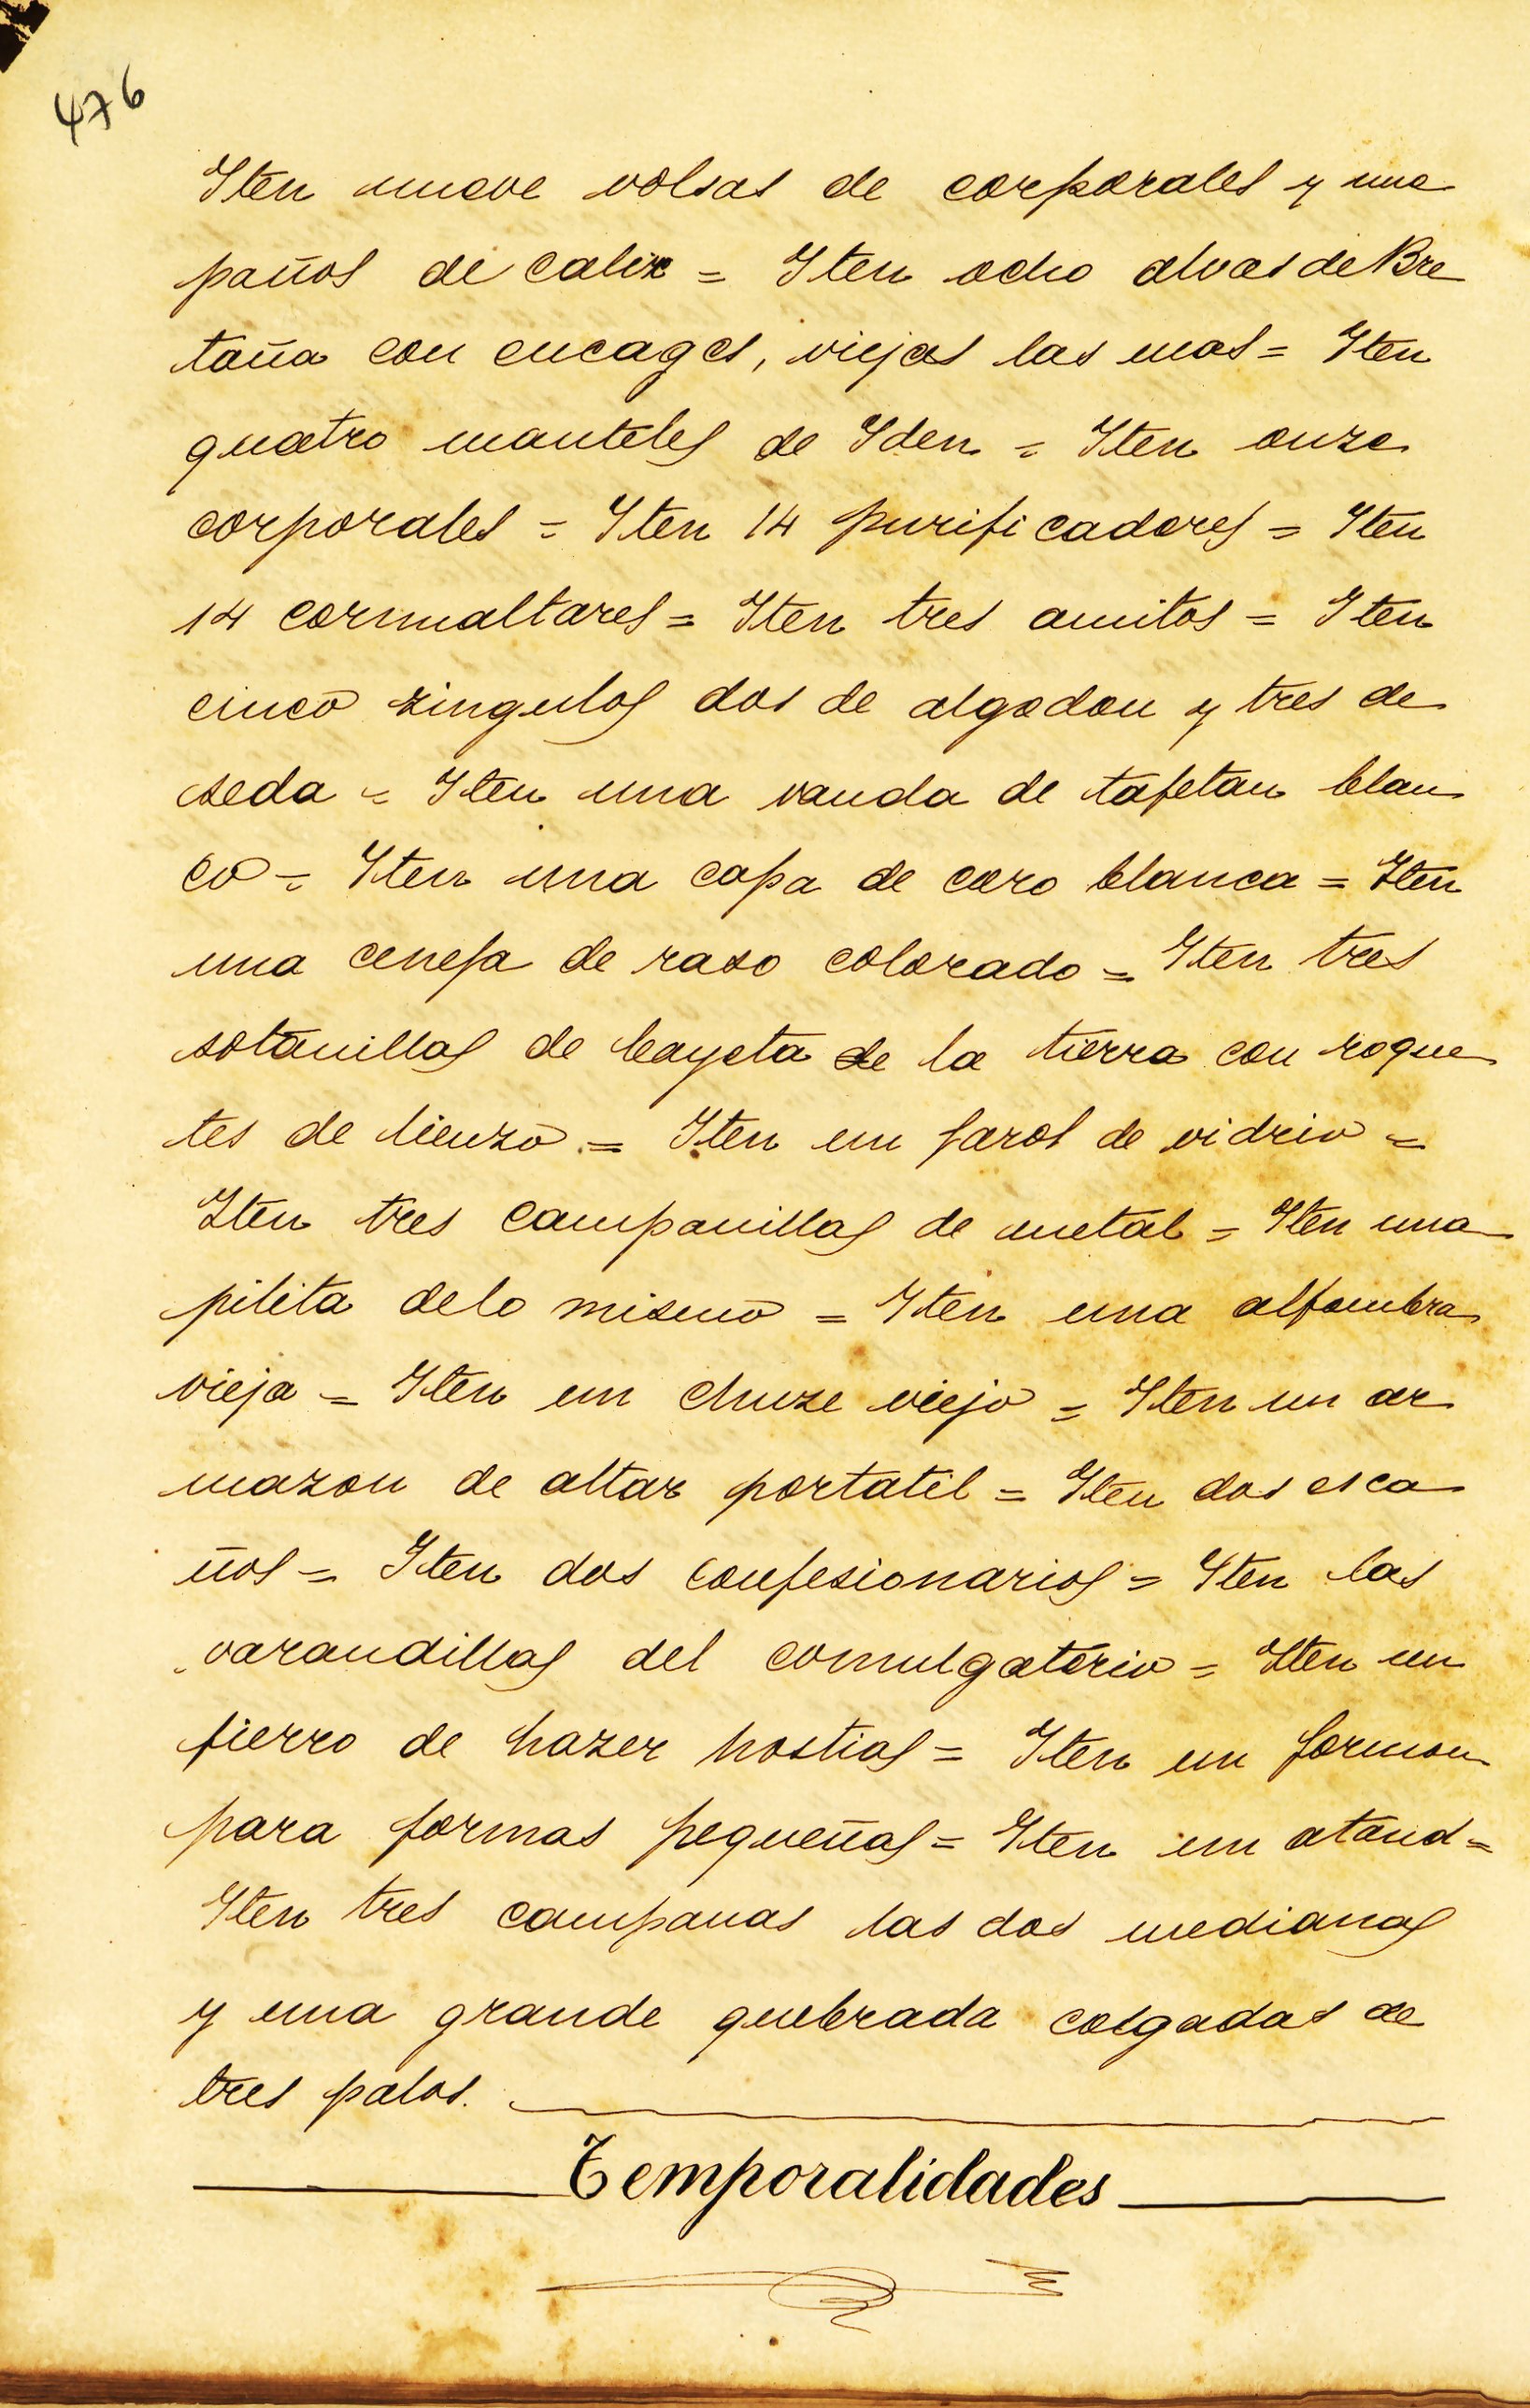 476
Iten nueve volsas de corporales y una
paños de calix = Iten ocho alvas de Bre
taña con encages, viejas las mas = Iten
quatro manteles de Iden = Iten onze
corporales = Iten 14 purificadores = Iten
14 cornualtares = Iten tres amitos = Iten
cinco zingulos dos de algodon y tres de
seda = Iten una vanda de tafetan blan
co = Iten una capa de coro blanca = Iten
una cenefa de raso colorado = Iten tres
sotanillas de bayeta de la tierra con roque
tes de lienzo = Iten un farol de vidrio =
Iten tres campanillas de metal = Iten una
pilita delo mismo = Iten una alfombra
vieja = Iten un chuze viejo = Iten un ar
mazon de altar portatil = Iten dos esca
ños = Iten dos confesionarios = Iten las
varandillas del comulgatorio = Iten un
fierro de hazer hostias = Iten un formon
para formas pequeñas = Iten un ataud =
Iten tres campanas las dos medianas
y una grande quebrada colgadas de
tres palos.
Temporalidades